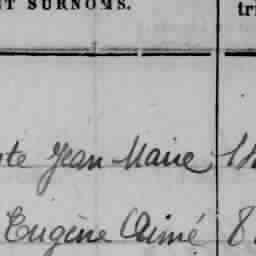 T SURNOMS. tri
te Jean Marie
Eugène Aimé 8